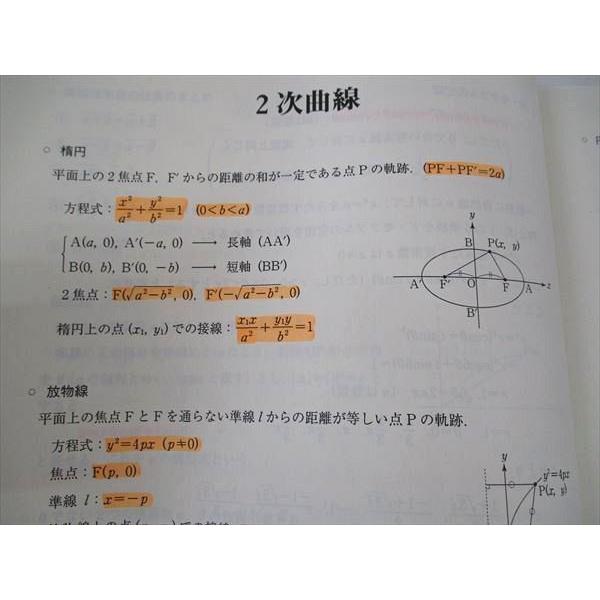 2次曲線
○ 楕円
平面上の2焦点F, F′からの距離の和が一定である点Pの軌跡. (PF+PF′=2a)
方程式：x²/a²+y²/b²=1 (0<b<a)
A(a, 0), A′(−a, 0) ⟶ 長軸 (AA′)
B(0, b), B′(0, −b) ⟶ 短軸 (BB′)
2焦点：F(√(a²−b²), 0), F′(−√(a²−b²), 0)
楕円上の点(x₁, y₁)での接線：x₁x/a²+y₁y/b²=1
y
B
P(x, y)
A′ F′ O F A x
B′
○ 放物線
平面上の焦点FとFを通らない準線lからの距離が等しい点Pの軌跡.
方程式：y²=4px (p≠0)
焦点：F(p, 0)
準線 l：x=−p
y
y²=4px
P(x, y)